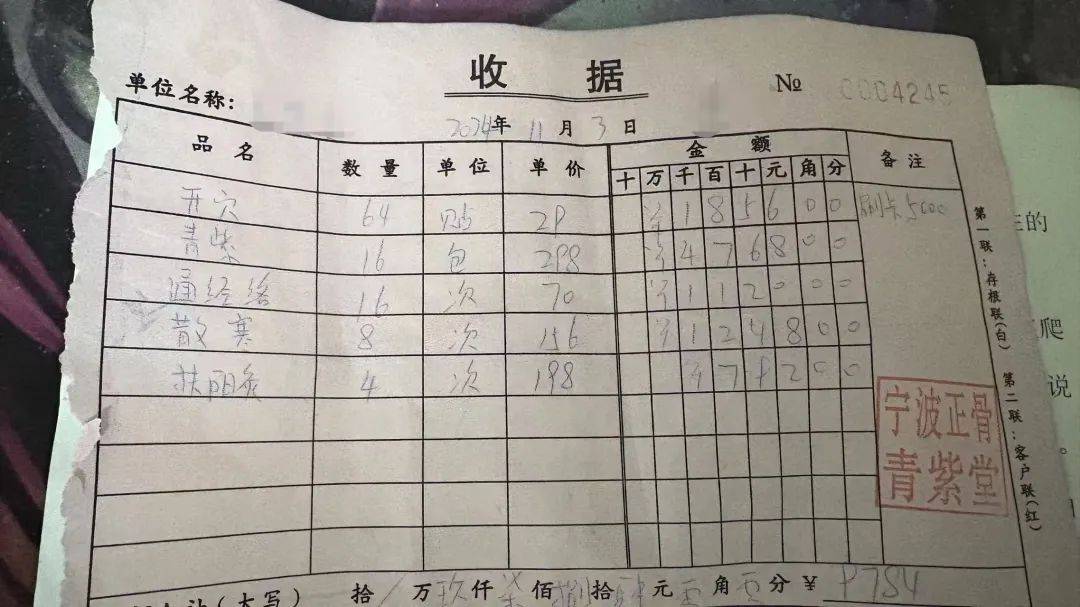 收 据
№ 0004245
单位名称:
2024年 11 月 3 日
品 名 数 量 单 位 单 价 金 额 备 注
十 万 千 百 十 元 角 分
开穴 64 贴 29 ¥ 1 8 5 6 0 0 刷卡5000
青紫 16 包 298 ¥ 4 7 6 8 0 0
通经络 16 次 70 ¥ 1 1 2 0 0 0
散寒 8 次 156 ¥ 1 2 4 8 0 0
扶阳灸 4 次 198 ¥ 7 9 2 0 0
宁波正骨
青紫堂
第一联:存根联(白) 第二联:客户联(红)
(大写) 拾 / 万 玖 仟 柒 佰 捌 拾 肆 元 零 角 零 分 ¥ 9784
的
爬
说